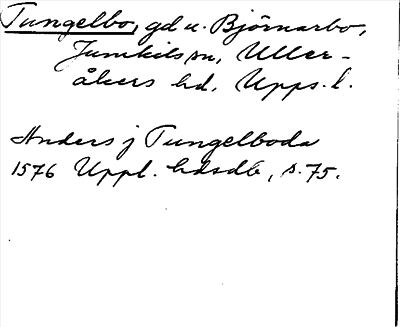 Tungelbo, gd u. Björnarbo,
Jumkils sn, Uller-
åkers hd, Upps. l.
Anders j Tungelboda
1576 Uppl. hdsdb, s. 75.